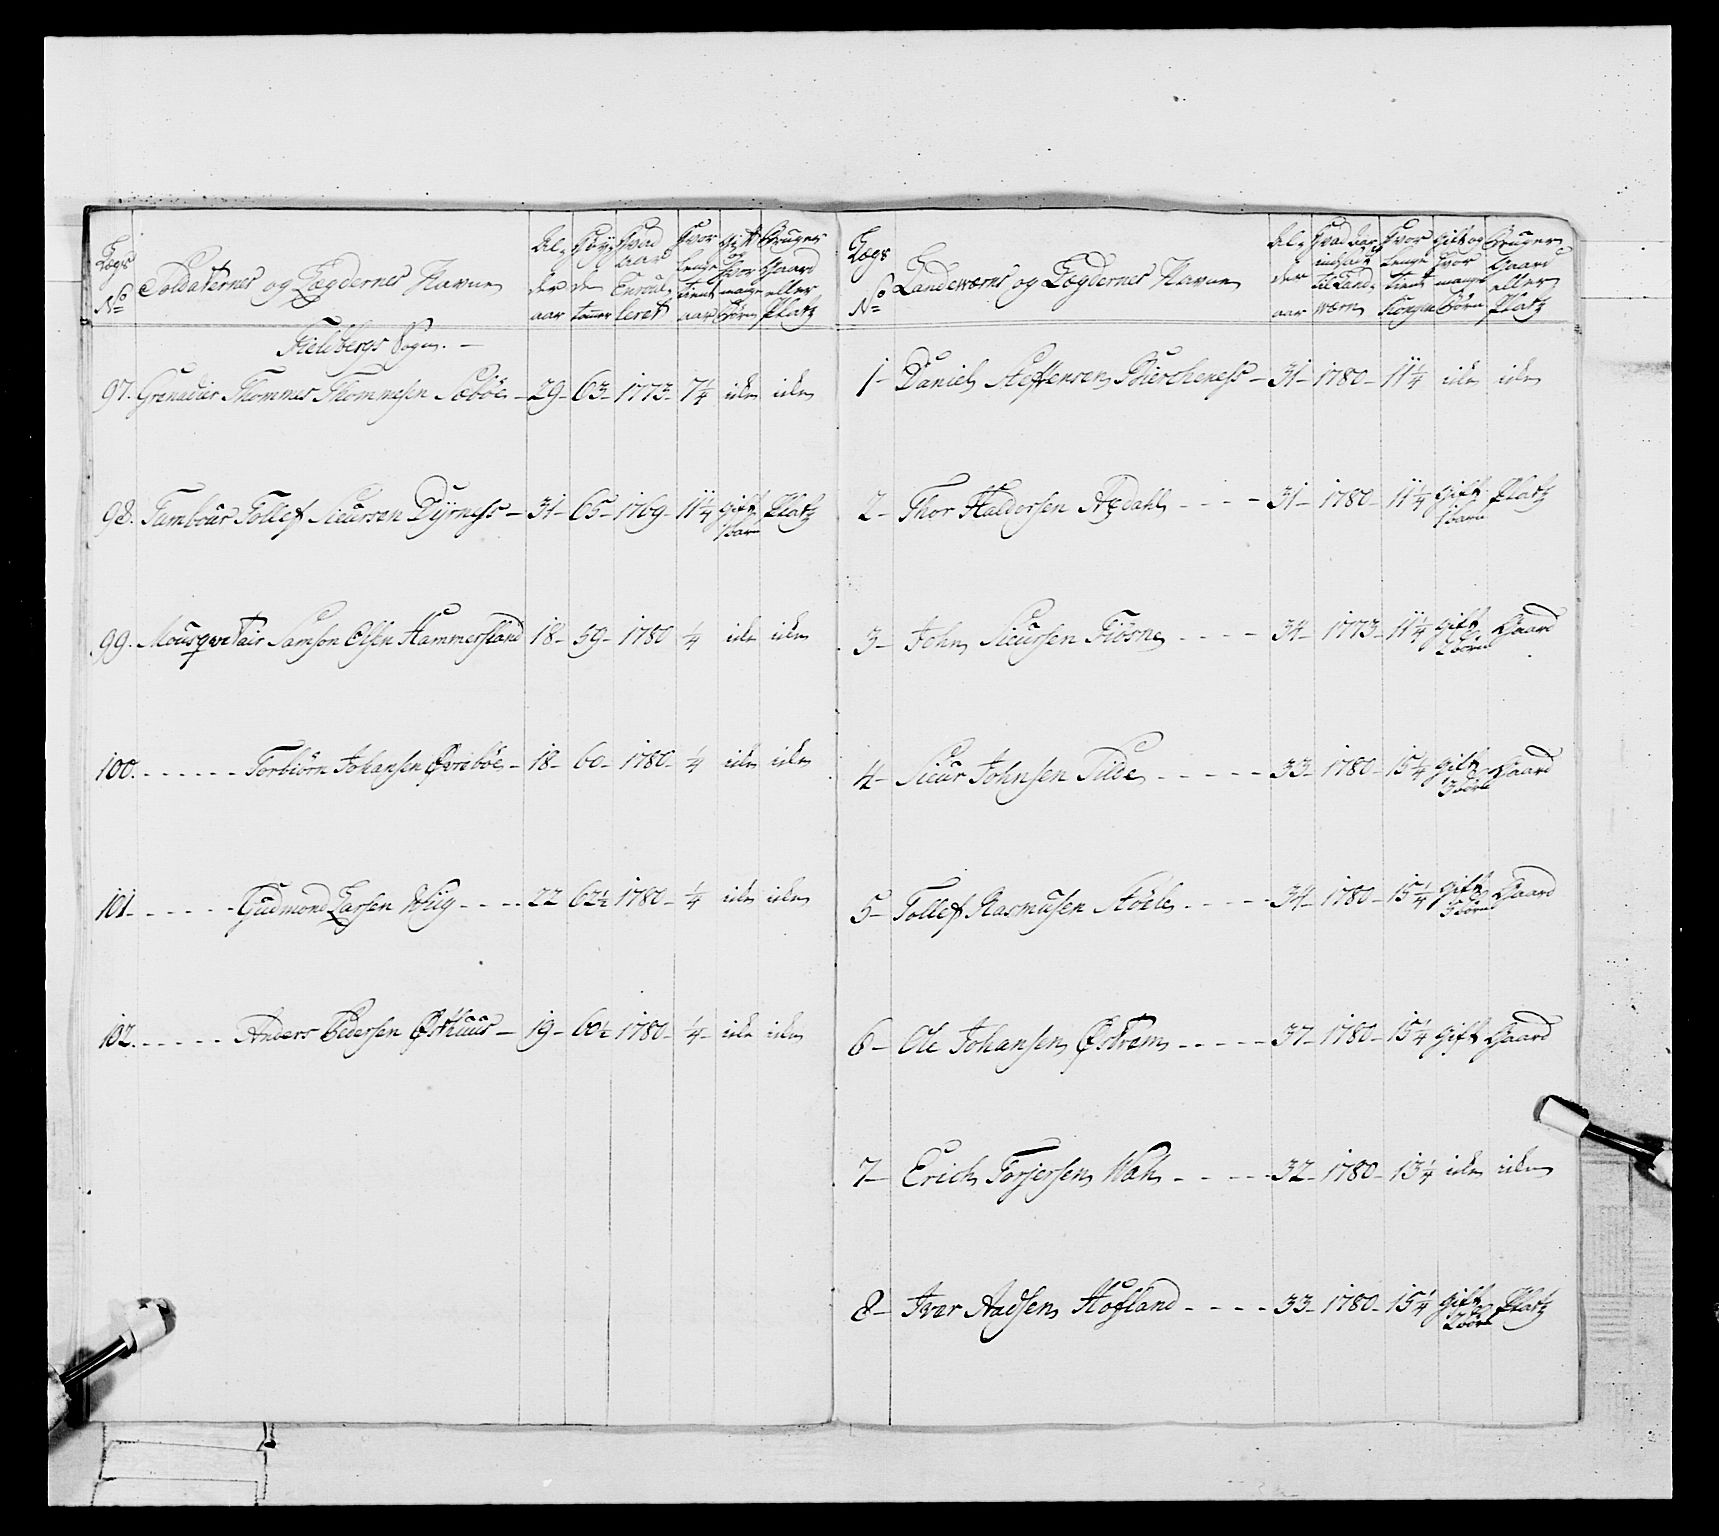 Lægs No | Soldaternes og Lægdernes Navne | Al, der aar | Høy, de tomer | Hvad aar Enroul, leret | Hvor lenge tient aar | gift og hvor mange Børn | Bruger Gaard eller Platz
Fieldbergs Sogn. —
97. Grenadier Thommes Thommesen Sæböe — 29 — 63 — 1773 — 7 1/4 iken iken
98. Tambour Tollef Siursen Dyrness — 31 — 65 — 1769 — 11 1/4 gift 1 barn Platz
99. Mousqvetair Samson Olsen Hammersland 18 — 59 — 1780 1/4 iken iken
100. - - - - - - Torbiörn Johansen Øvreböe — 18 — 60 — 1780 — 1/4 iken iken
101 - - - - - - Gudmond Larsen Wiig - - - - 22 62 1/2 1780 — 1/4 iken iken
102. - - - - - Anders Pedersen Østhuus — 19 — 60 1/2 1780 — 1/4 — iken iken
Lægs No | Landeværns og Lægdernes Navne | Al, der aar | Hvad aar indsat til Land, værn | Hvor lenge tient Kongen | gift og hvor mange Börn | Bruger Gaard eller Platz
1 — Daniel Steffensen Bierckeness — 31 — 1780 — 11 1/4 iken iken
2 — Thor Haldorsen Ardahl - - - - 31 — 1780 — 11 1/4 gift 1 barn Platz
3 — John Siursen Fiösne - - - - 34 — 1773 — 11 1/4 gift 2 börn Gaard
4 — Siur Johnsen Tilde - - - - - 33 — 1780 — 15 1/4 gift 3 börn Gaard
5 — Tollef Rasmusen Stöele - - - - - 34 — 1780 — 15 1/4 gift 3 börn Gaard
6 — Ole Johansen Østrem - - - - - 37 — 1780 — 15 1/4 gift Gaard
7 — Erich Torjersen Wah - - - - - 32 — 1780 — 13 1/4 iken iken
8 — Iver Aadsen Hofland - - - - 33 — 1780 — 15 1/4 gift 2 börn Platz